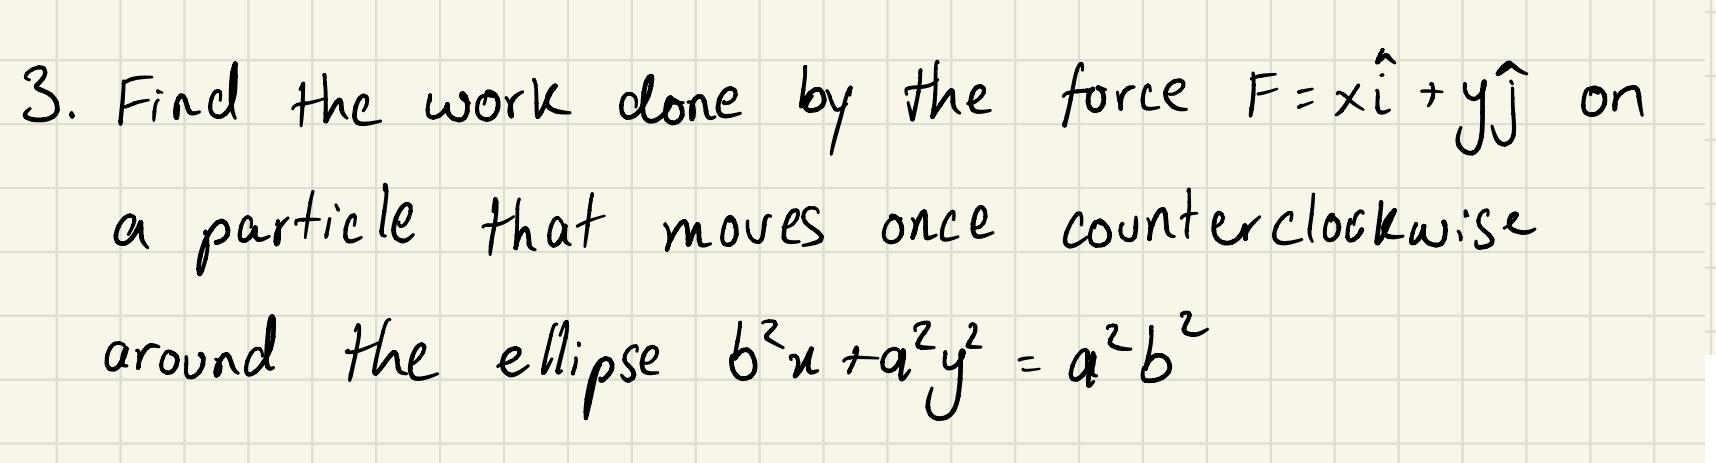 3. Find the work done by the force F = xî + yĵ on
a particle that moves once counterclockwise
around the ellipse b²x + a²y² = a²b²